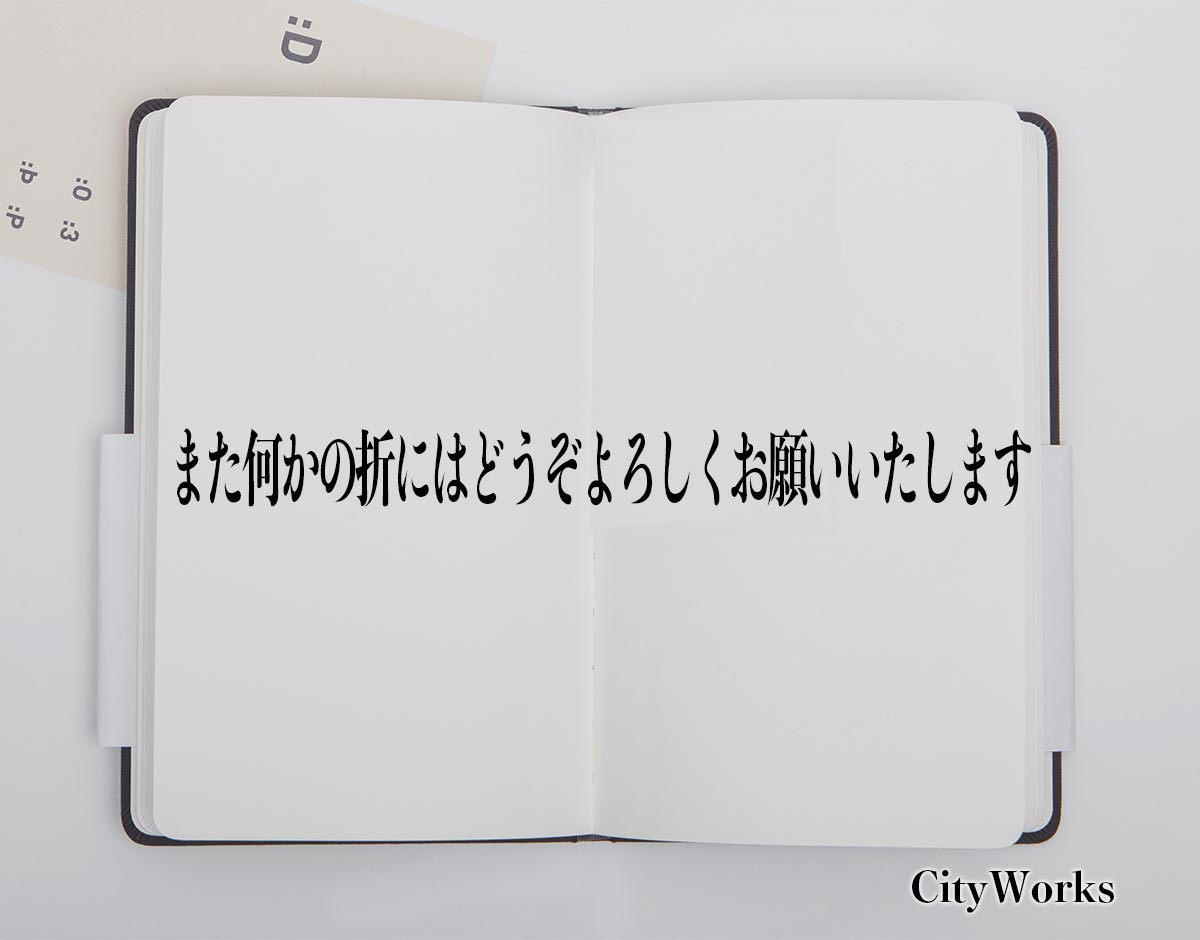 :D
:P :O
:P :3
また何かの折にはどうぞよろしくお願いいたします
CityWorks